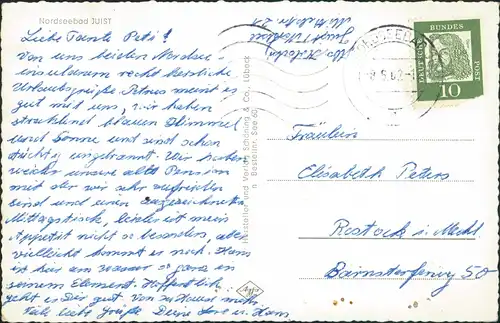 Nordseebad JUIST
Liebe Tante Peti!
Von uns beiden Nordsee-
insulanern recht herzliche
Urlaubsgrüße. Petrus meint es
gut mit uns, wir haben
strahlend blauen Himmel
und Sonne und sind schon
tüchtig eingebrannt. Wir haben
wieder unsere alte Pension
mit der wir sehr zufrieden
sind und einen ausgezeichneten
Mittagstisch, leider ist mein
Appetit nicht so besonders, aber
vielleicht kommt es noch. Hans
ist hier am Wasser so ganz in
seinem Element. Hoffentlich
geht es Dir gut. Von zu Hause mehr.
Viele liebe Grüße Deine u. Hans
Hersteller und Verlag Schöning & Co., Lübeck
n. Bestellnr. See 60
Agfa
DEUTSCHE
BUNDES
POST
10
Fräulein
Elisabeth Peters
Rostock i. Meckl.
50